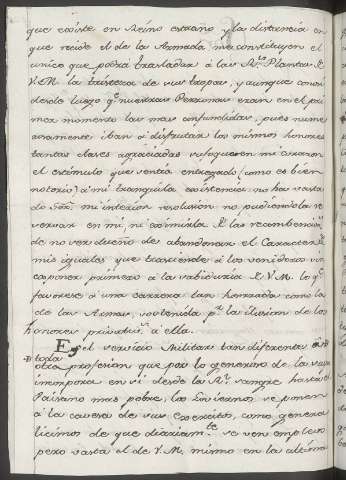 que existe en Reino estraño y la distancia en
que reside el de la Armada, me constituyen el
unico que podrá trasladar á las R.s Plantas de
V.M. la tristeza de sus tropas, y aunque conocí
desde luego q.e nuestras Personas eran en el pri
mer momento las mas confundidas, pues nueva
mente iban á disfrutar los mismos honores
tantas clases agraciadas sufoqué en mi corazon
el estimulo que sentia entregado (como es bien
notorio) á mi tranquila existencia: no ha vasta
do Señor mi interior resolucion no pudiendola re
servar en mi, ni eximirla de las recombenciones
de no ser dueño de abandonar el Caracter de
mis iguales que trasciende á los venideros sin
exponer primero á la sabiduria de V.M. lo q.e
favorece á una carrera tan honrrada como la
de las Armas, sostenida p.r la ilusion de los
honores privativ.s á ella.
Es el servicio Militar tan diferente de
toda
otra profesion que por lo generoso de la
incorpora en sí desde la R.l sangre hasta el
Paisano mas pobre, los Soberanos se ponen
á la caveza de sus exercitos, como genera
licimos de que diariam.te se ven empleos
pero hasta el de V.M. mismo en la ultima